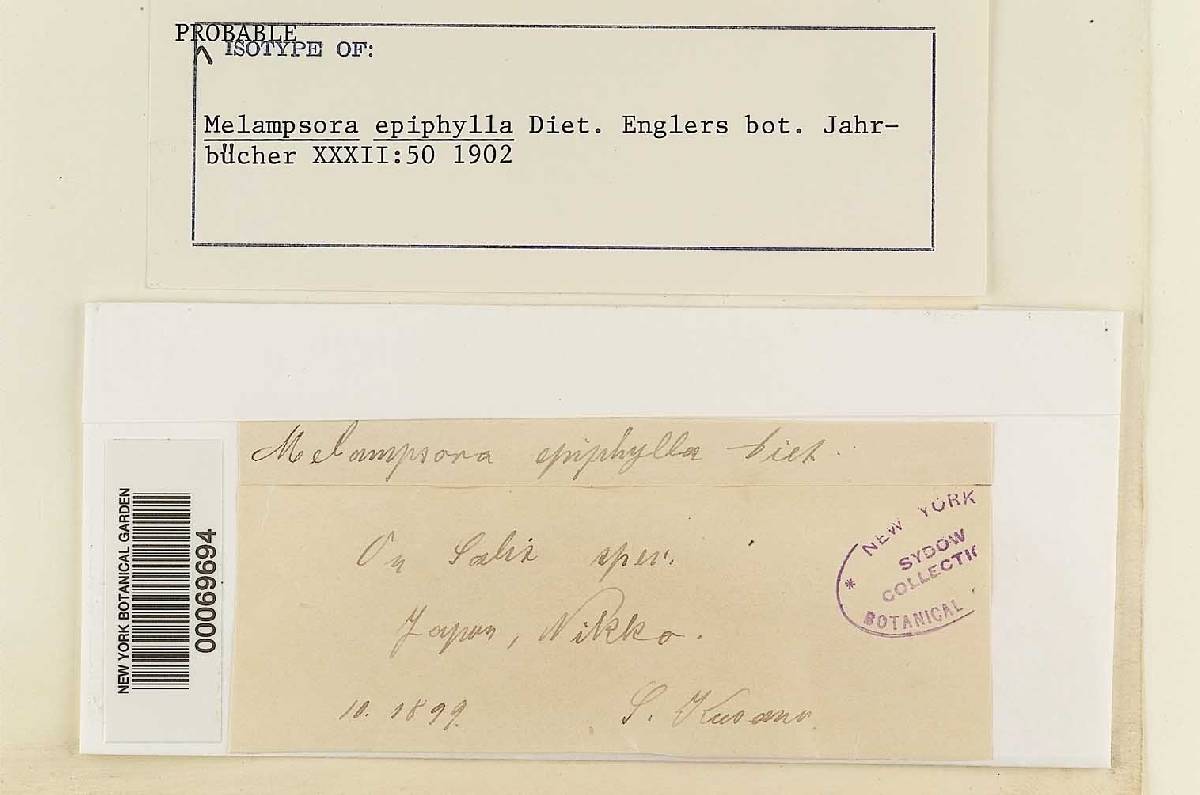 PROBABLE
ISOTYPE OF:
Melampsora epiphylla Diet. Englers bot. Jahr-
bücher XXXII:50 1902
Melampsora epiphylla Diet.
On Salix spec.
Japan, Nikko.
10. 1899.
S. Kusano
NEW YORK
SYDOW
COLLECTIO
BOTANICAL
NEW YORK BOTANICAL GARDEN
00069694